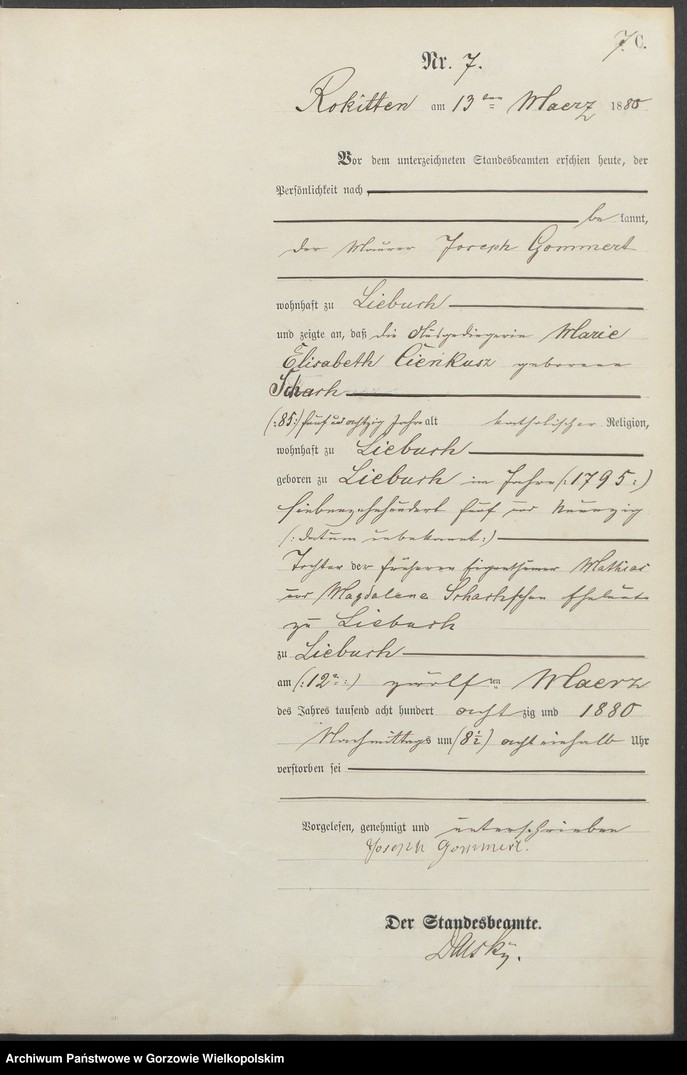 7 C.
Nr. 7.
Rokitten am 13ten Maerz 1880
Vor dem unterzeichneten Standesbeamten erschien heute, der
Persönlichkeit nach,
be kannt,
der Maurer Joseph Gommert
wohnhaft zu Liebuch
und zeigte an, daß die Ausgedingerin Marie
Elisabeth Cienkusz geborene
Scharch
(:85:) fünf und achtzig Jahre alt katholischer Religion,
wohnhaft zu Liebuch
geboren zu Liebuch im Jahre (:1795:)
siebenzehnhundert fünf und Neunzig
(: datum unbekannt:)
Tochter der früheren Eigenthümer Mathias
und Magdalena Eheleute
zu Liebuch
zu Liebuch
am (:12n:) zwölf ten Maerz
des Jahres tausend acht hundert acht zig und 1880
Nachmittags um (8½) acht einhalb Uhr
verstorben sei
Vorgelesen, genehmigt und unterschrieben
Joseph Gommert.
Der Standesbeamte.
Archiwum Państwowe w Gorzowie Wielkopolskim